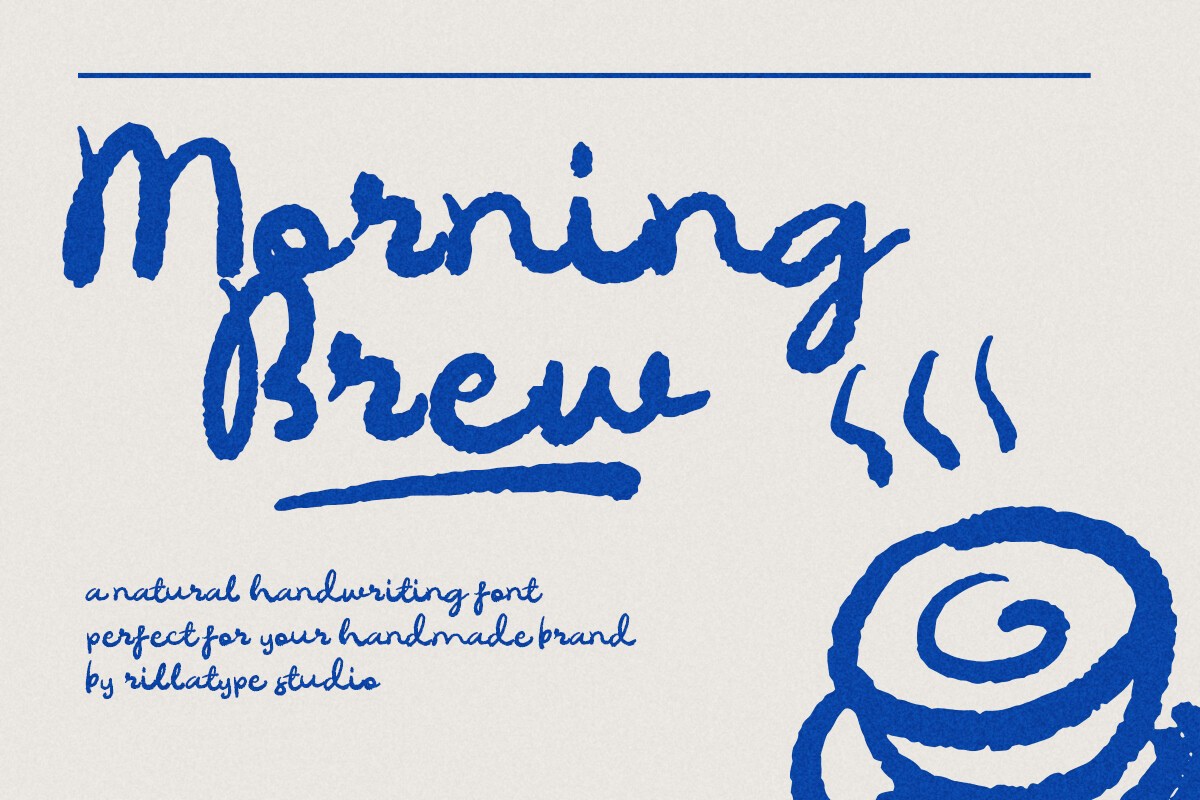 Morning
Brew
a natural handwriting font
perfect for your handmade brand
by rillatype studio